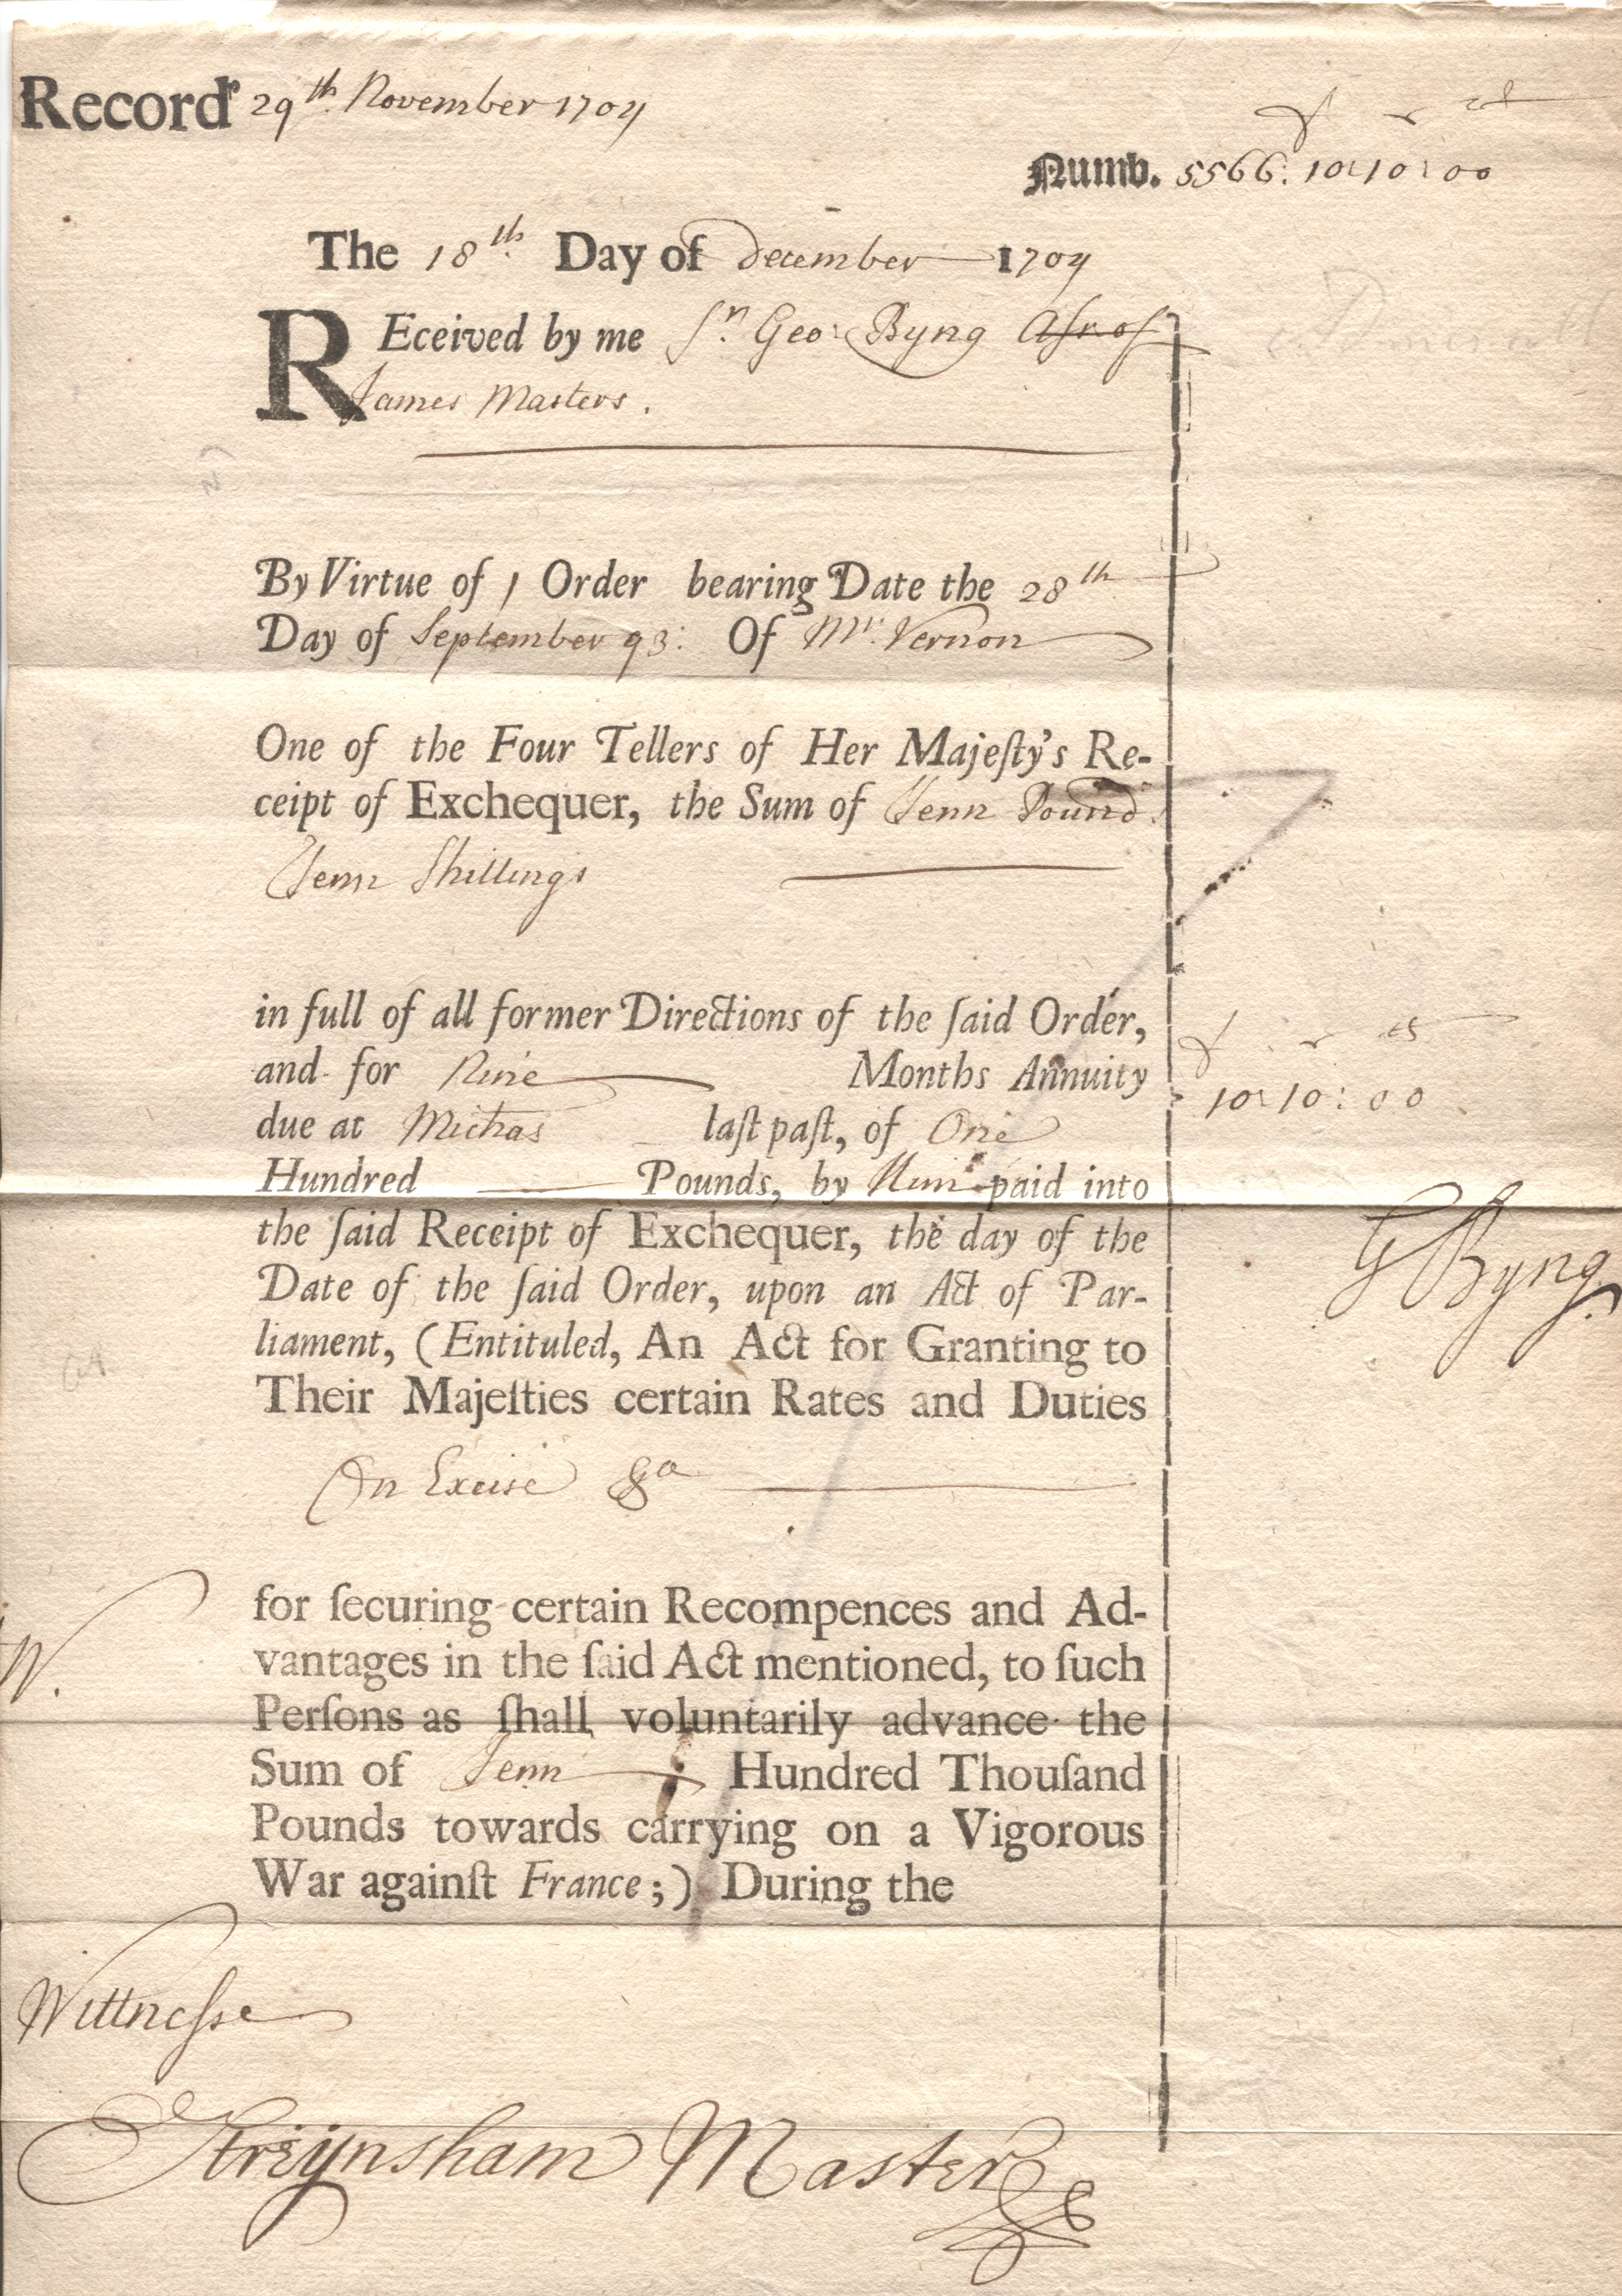 Recordr 29th November 1709
£ s d
Numb. 5566: 10:10:00
The 18th Day of December 1709
REceived by me Sr. Geo: Byng Asse of
James Masters.
By Virtue of 1 Order bearing Date the 28th
Day of September 93: Of Mr. Vernon
One of the Four Tellers of Her Majeſty's Re-
ceipt of Exchequer, the Sum of Tenn Pound.
Tenn Shillings
in full of all former Directions of the ſaid Order,
and for Nine Months Annuity
£ s d
due at Michas laſt paſt, of One
10:10:00
Hundred Pounds, by Him paid into
the ſaid Receipt of Exchequer, the day of the
G Byng.
Date of the ſaid Order, upon an Act of Par-
liament, (Entituled, An Act for Granting to
Their Majeſties certain Rates and Duties
On Excise &a
for ſecuring certain Recompences and Ad-
vantages in the ſaid Act mentioned, to ſuch
W.
Perſons as ſhall voluntarily advance the
Sum of Tenn Hundred Thouſand
Pounds towards carrying on a Vigorous
War againſt France;) During the
Wittnesse
Streynsham Master